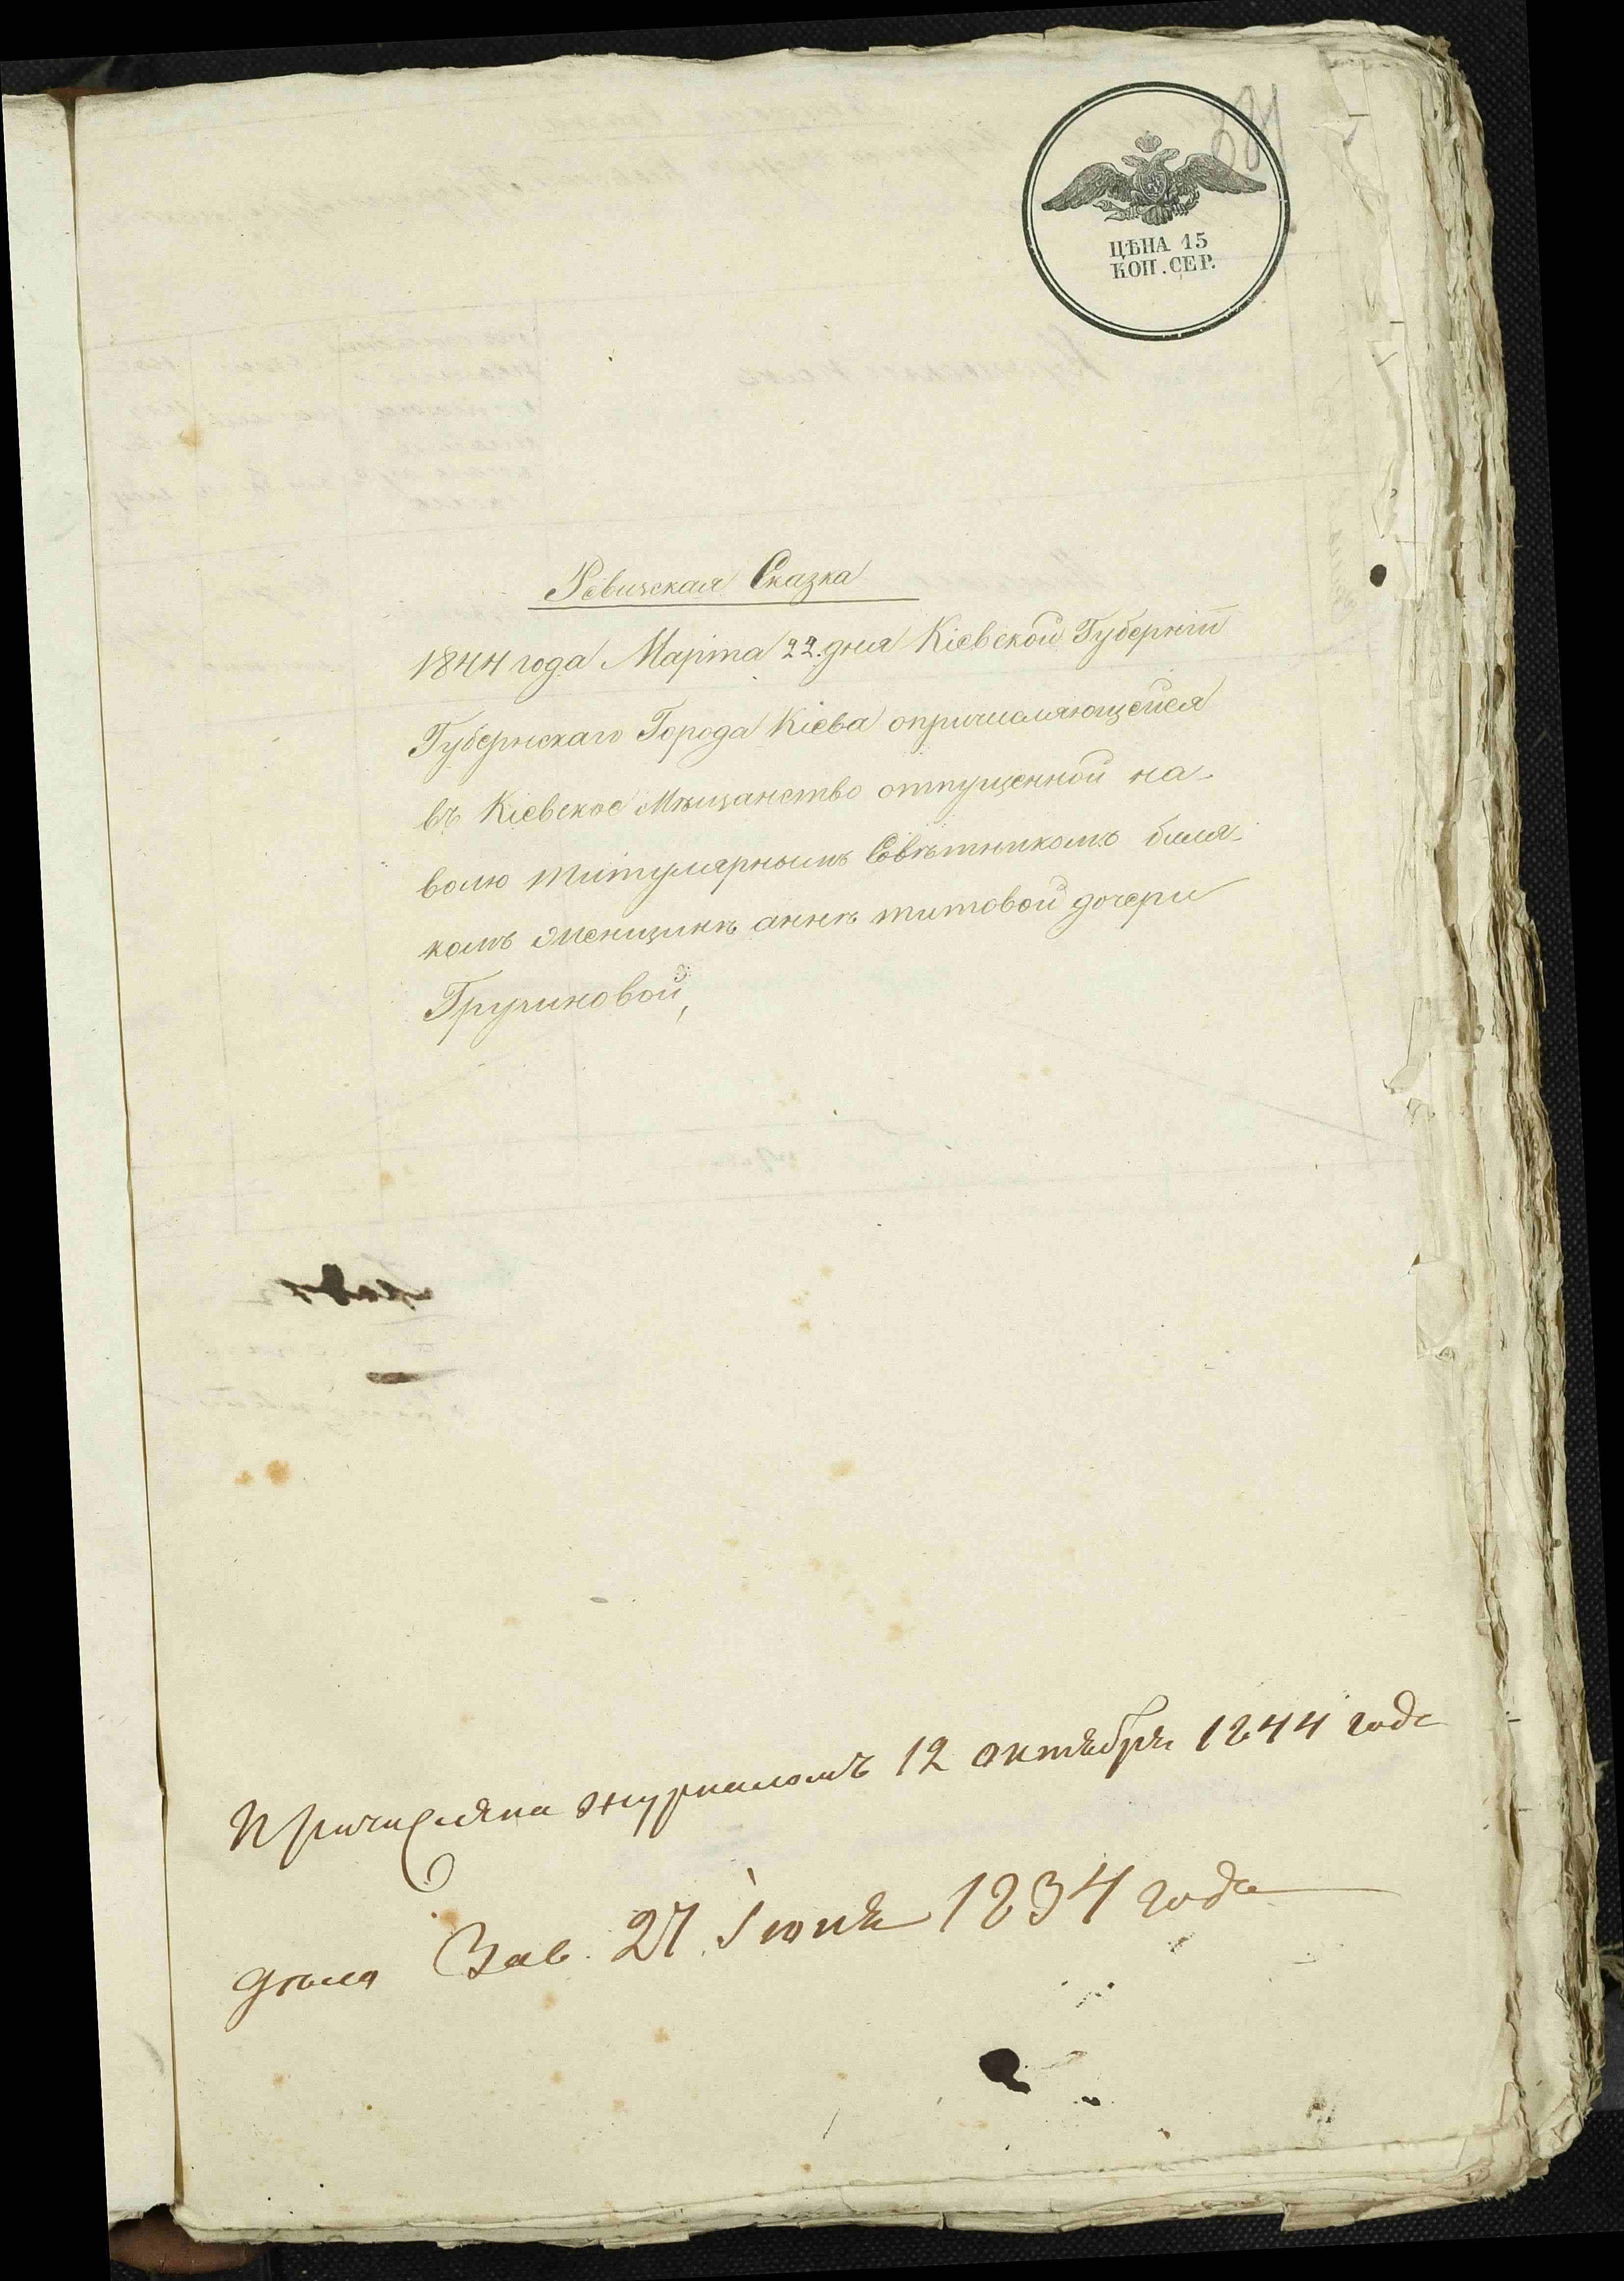 ЦѢНА 15
КОП. СЕР.
Ревизская Сказка
1844 года Марта 22. дня Кіевской Губерніи
Губернскаго Города Кіева опричисляющейся
въ Кіевское Мѣщанство отпущенной на
волю титулярнымъ Совѣтникомъ
комъ Женщинѣ аннѣ титовой дочери
Причислена журналомъ 12 октября 1844 года
дѣла Зав. 27 Іюня 1834 года